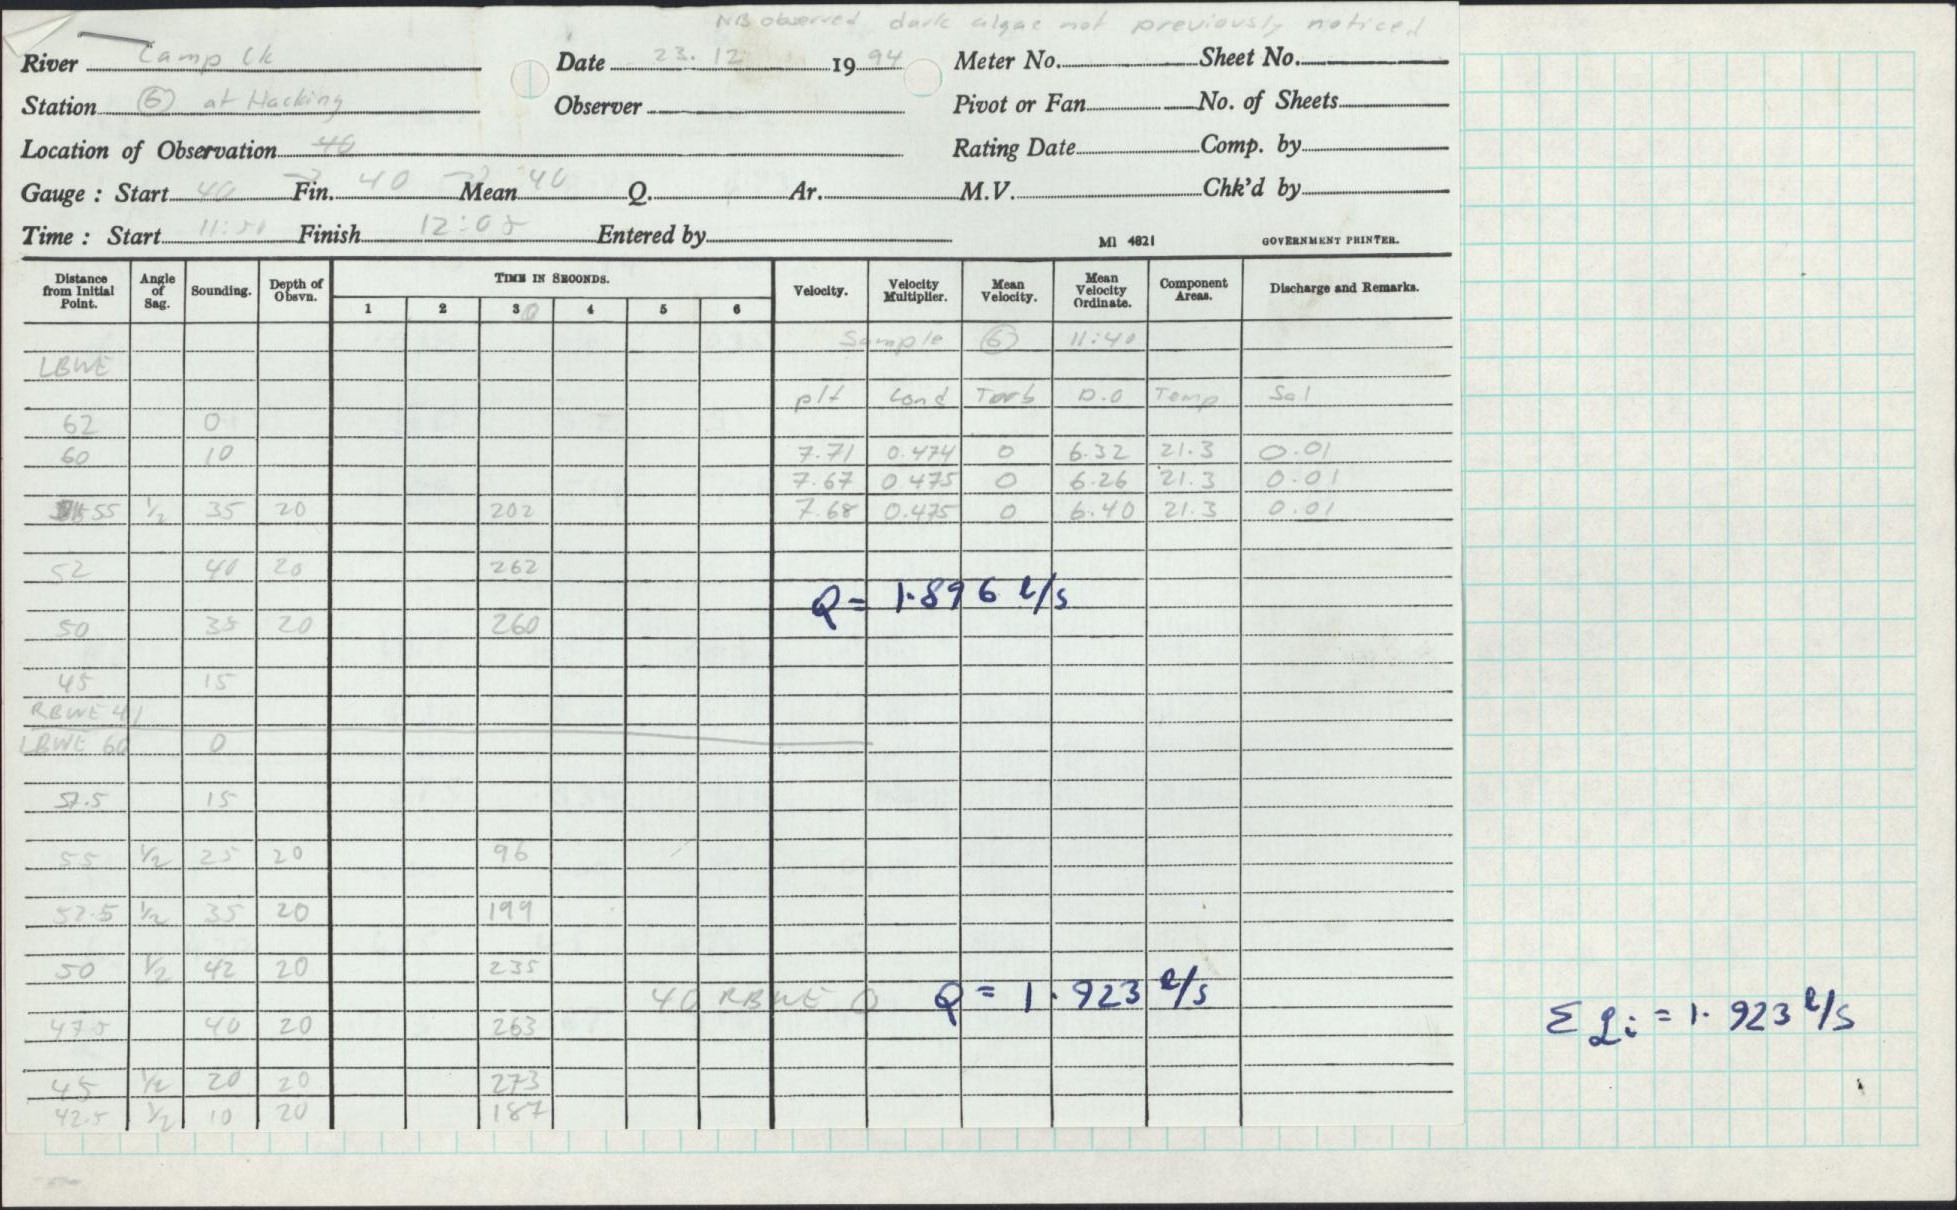 NB observed dark algae not previously noticed
River Camp Ck Date 23.12 1994 Meter No. Sheet No.
Station (6) at Hacking Observer Pivot or Fan No. of Sheets
Location of Observation 40 Rating Date Comp. by
Gauge : Start 40 Fin. 40 Mean 40 Q. Ar. M.V. Chk'd by
Time : Start Finish 12:05 Entered by M1 4821 GOVERNMENT PRINTER.
Distance from Initial Point. Angle of Sag. Sounding. Depth of Obsvn. TIME IN SECONDS. Velocity. Velocity Multiplier. Mean Velocity. Mean Velocity Ordinate. Component Areas. Discharge and Remarks.
1 2 3 0 4 5 6
Sample (6) 11:40
LBWE
pH Cond Turb D.O Temp Sal
62 0
60 10 7.71 0.474 0 6.32 21.3 0.01
7.67 0.475 0 6.26 21.3 0.01
55 1/2 35 20 202 7.68 0.475 0 6.40 21.3 0.01
52 40 20 262
Q = 1.896 l/s
50 35 20 260
45 15
RBWE 41
LBWE 60 0
57.5 15
55 1/2 25 20 96
52.5 1/2 35 20 199
50 1/2 42 20 235
40 RBWE 0 Q = 1.923 l/s
47.5 40 20 263
Σ Qi = 1.923 l/s
45 1/2 20 20 273
42.5 1/2 10 20 187